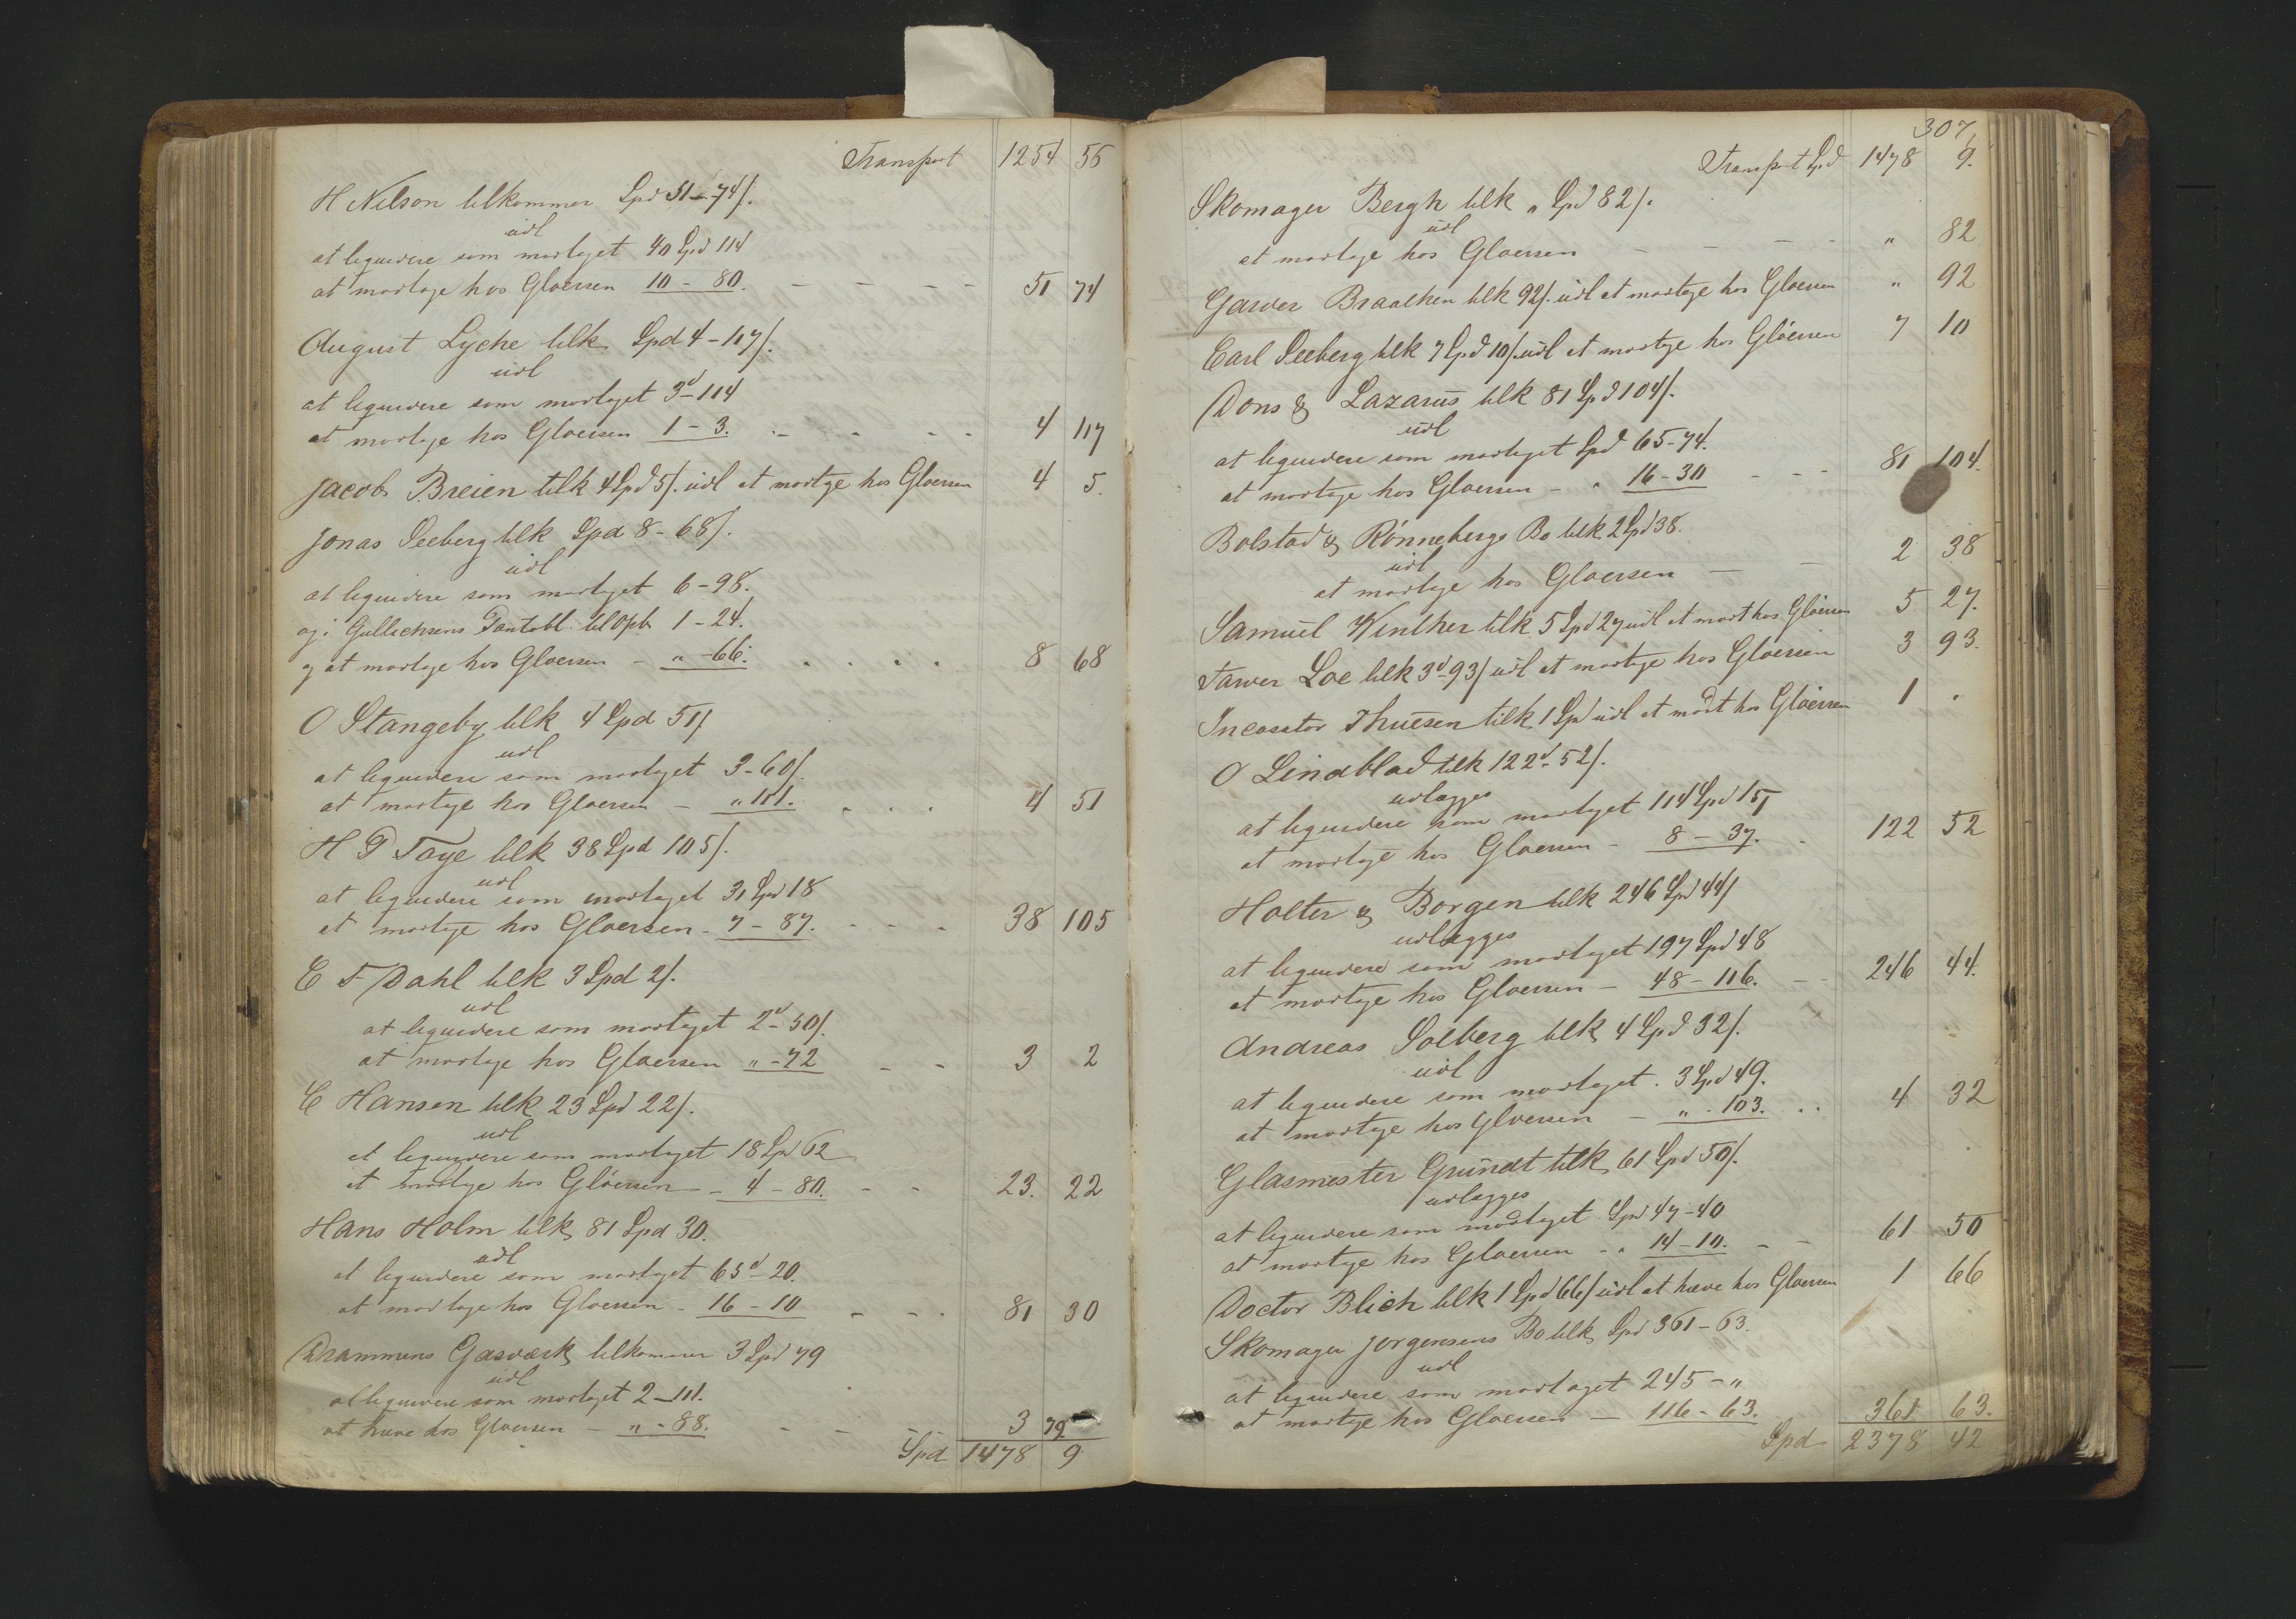 Transport 1254 56
H Nelson tilkommer Spd 51-74/.
udl
at liquidere som modtaget 40 Spd 114
at modtage hos Gloersen 10 - 80. - - - - - 51 74
August Lyche tilk Spd 4-117/.
udl
at liquidere som modtaget 3d-114
at modtage hos Gloersen 1 - 3. - - - - 4 117
Jacob Breien tilk 4 Spd 5/. udl at modtge hos Gloersen 4 5.
Jonas Seeberg tilk Spd 8-68/.
udl
at liquidere som modtaget 6-98.
og i Gullichsens Pantobl. til Opb. 1-24.
og at modtage hos Gloersen - " -66. . . . . . 8 68
O Stangeby tilk 4 Spd 51/
udl
at liquidere som modtaget 3-60/.
at modtage hos Gloersen - " 111. . . . 4 51
H P Faye tilk 38 Spd 105/.
udl
at liquidere som modtaget 31 Spd 18
at modtage hos Gloersen - 7 - 87. - - - - 38 105
C F Dahl tilk 3 Spd 2/.
udl
at liquidere som modtaget 2d-50/.
at modtage hos Gloersen " -72 - - 3 2
C Hansen tilk 23 Spd 22/.
udl
at liquidere som modtaget 18 Spd 62
at modtage hos Gloersen - 4 - 80. - - 23. 22
Hans Holm tilk 81 Spd 30.
udl
at liquidere som modtaget 65d-20.
at modtage hos Gloersen - 16 - 10 - - - 81 30
Drammens Gasværk tilkommer 3 Spd 79
udl
at liquidere som modtaget 2-111.
at hæve hos Gloersen - " - 88. - - - 3 79
Spd 1478 9
307
Transport Spd 1478 9.
Skomager Bergh tilk " Spd 82/.
udl
at modtage hos Gloersen - - - - " 82
Garver Braathen tilk 92/. udl at modtage hos Gloersen " 92
Carl Seeberg tilk 7 Spd 10/. udl at modtge hos Gloersen 7 10
Dons & Lazarus tilk 81 Spd 104/.
udl
at liquidere som modtaget Spd 65-74.
at modtage hos Gloersen - " 16-30 - - - 81 104.
Bolstad & Rönnebergs Bo tilk 2 Spd 38.
udl
at modtage hos Gloersen - - 2 38
Samuel Winther tilk 5 Spd 27 udl at modt hos Gloersen 5 27.
Farver Loe tilk 3d-93/ udl at modtage hos Gloersen 3 93.
Incasator Thuesen tilk 1 Spd udl at modt hos Gloersen 1 "
O Lindblad tilk 122d-52/.
udlægges
at liquidere som modtaget 114 Spd 15/
at modtage hos Gloersen - 8 - 37. . 122 52
Holter & Borgen tilk 246 Spd 44/
udlægges
at liquidere som modtaget 197 Spd 48
at modtage hos Gloersen - 48 - 116. - - 246 44.
Andreas Solberg tilk 4 Spd 32/.
udl
at liquidere som modtaget. 3 Spd 49.
at modtage hos Gloersen - " - 103. . . 4 32
Glasmester Grundt tilk 61 Spd 50/.
udlægges
at liquidere som modtaget Spd 47-40
at modtage hos Gloersen - " 14-10. - - 61 50
Doctor Blich tilk 1 Spd 66/ udl at hæve hos Gloersen 1 66
Skomager Jorgensens Bo tilk Spd 361-63.
udl
at liquidere som modtaget 245 - "
at modtage hos Gloersen - 116-63. 361 63.
Spd 2378 42